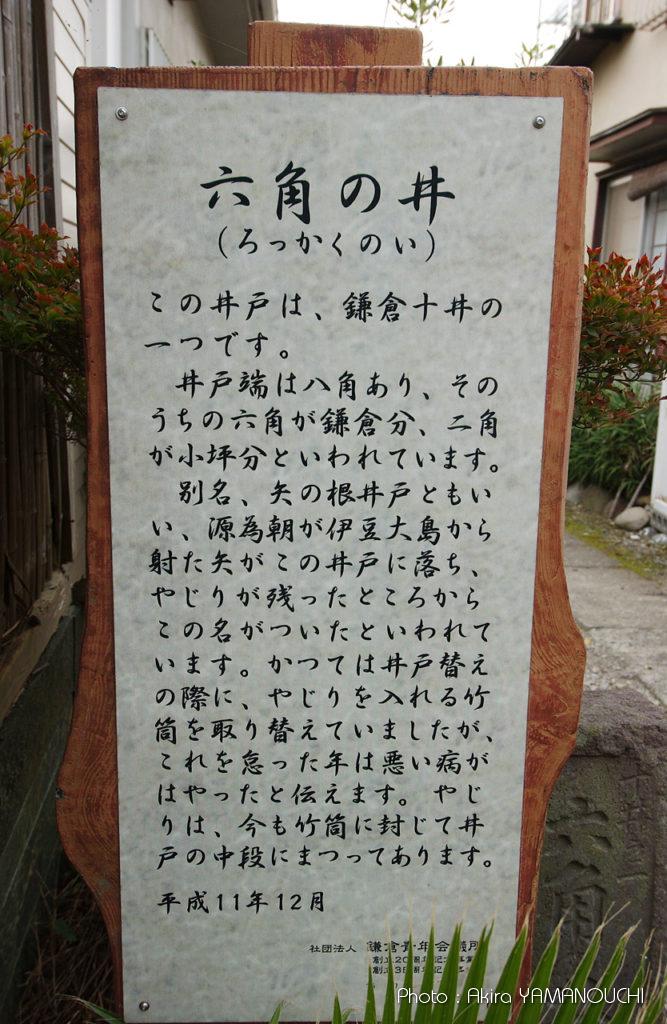 六角の井
（ろっかくのい）
この井戸は、鎌倉十井の
一つです。
井戸端は八角あり、その
うちの六角が鎌倉分、二角
が小坪分といわれています。
別名、矢の根井戸ともい
い、源為朝が伊豆大島から
射た矢がこの井戸に落ち、
やじりが残ったところから
この名がついたといわれて
います。かつては井戸替え
の際に、やじりを入れる竹
筒を取り替えていましたが、
これを怠った年は悪い病が
はやったと伝えます。やじ
りは、今も竹筒に封じて井
戸の中段にまつってあります。
平成11年12月
社団法人 鎌倉青年会議所
六角
Photo : Akira YAMANOUCHI